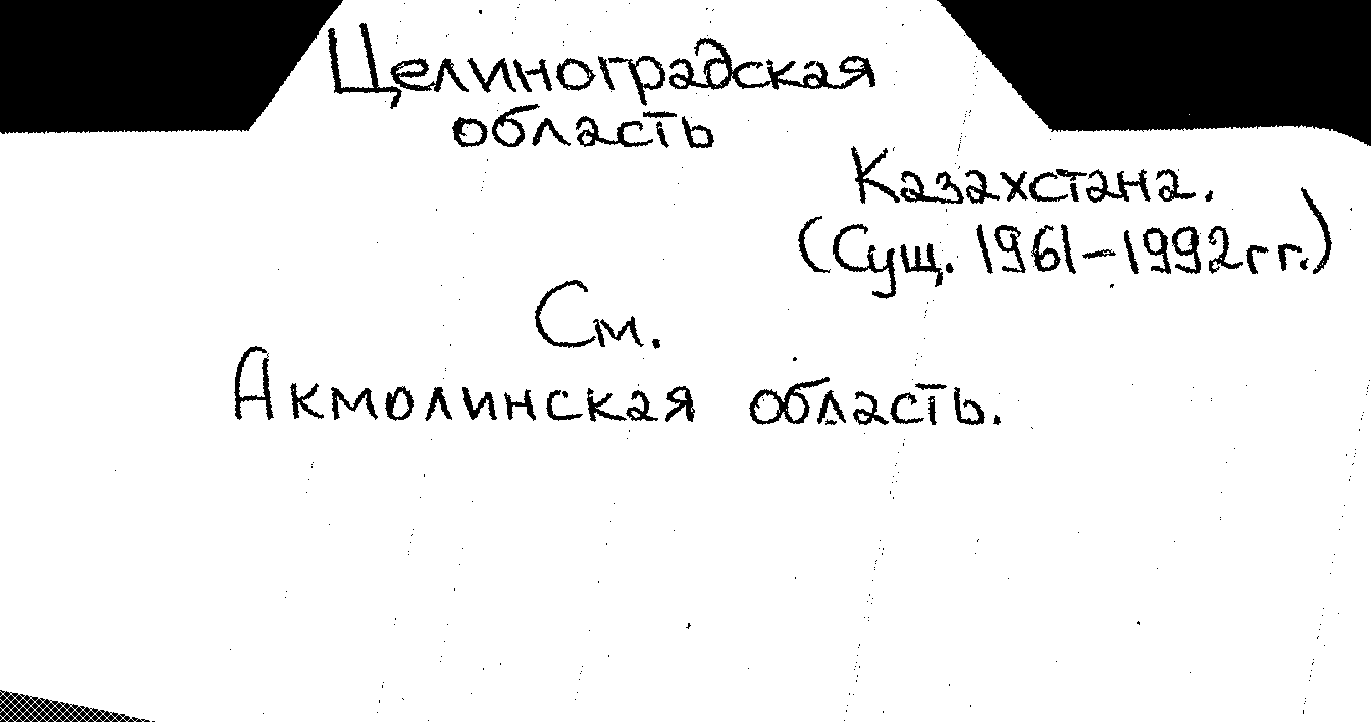 Целиноградская
область
Казахстана.
(Сущ. 1961-1992гг.)
См.
Акмолинская область.